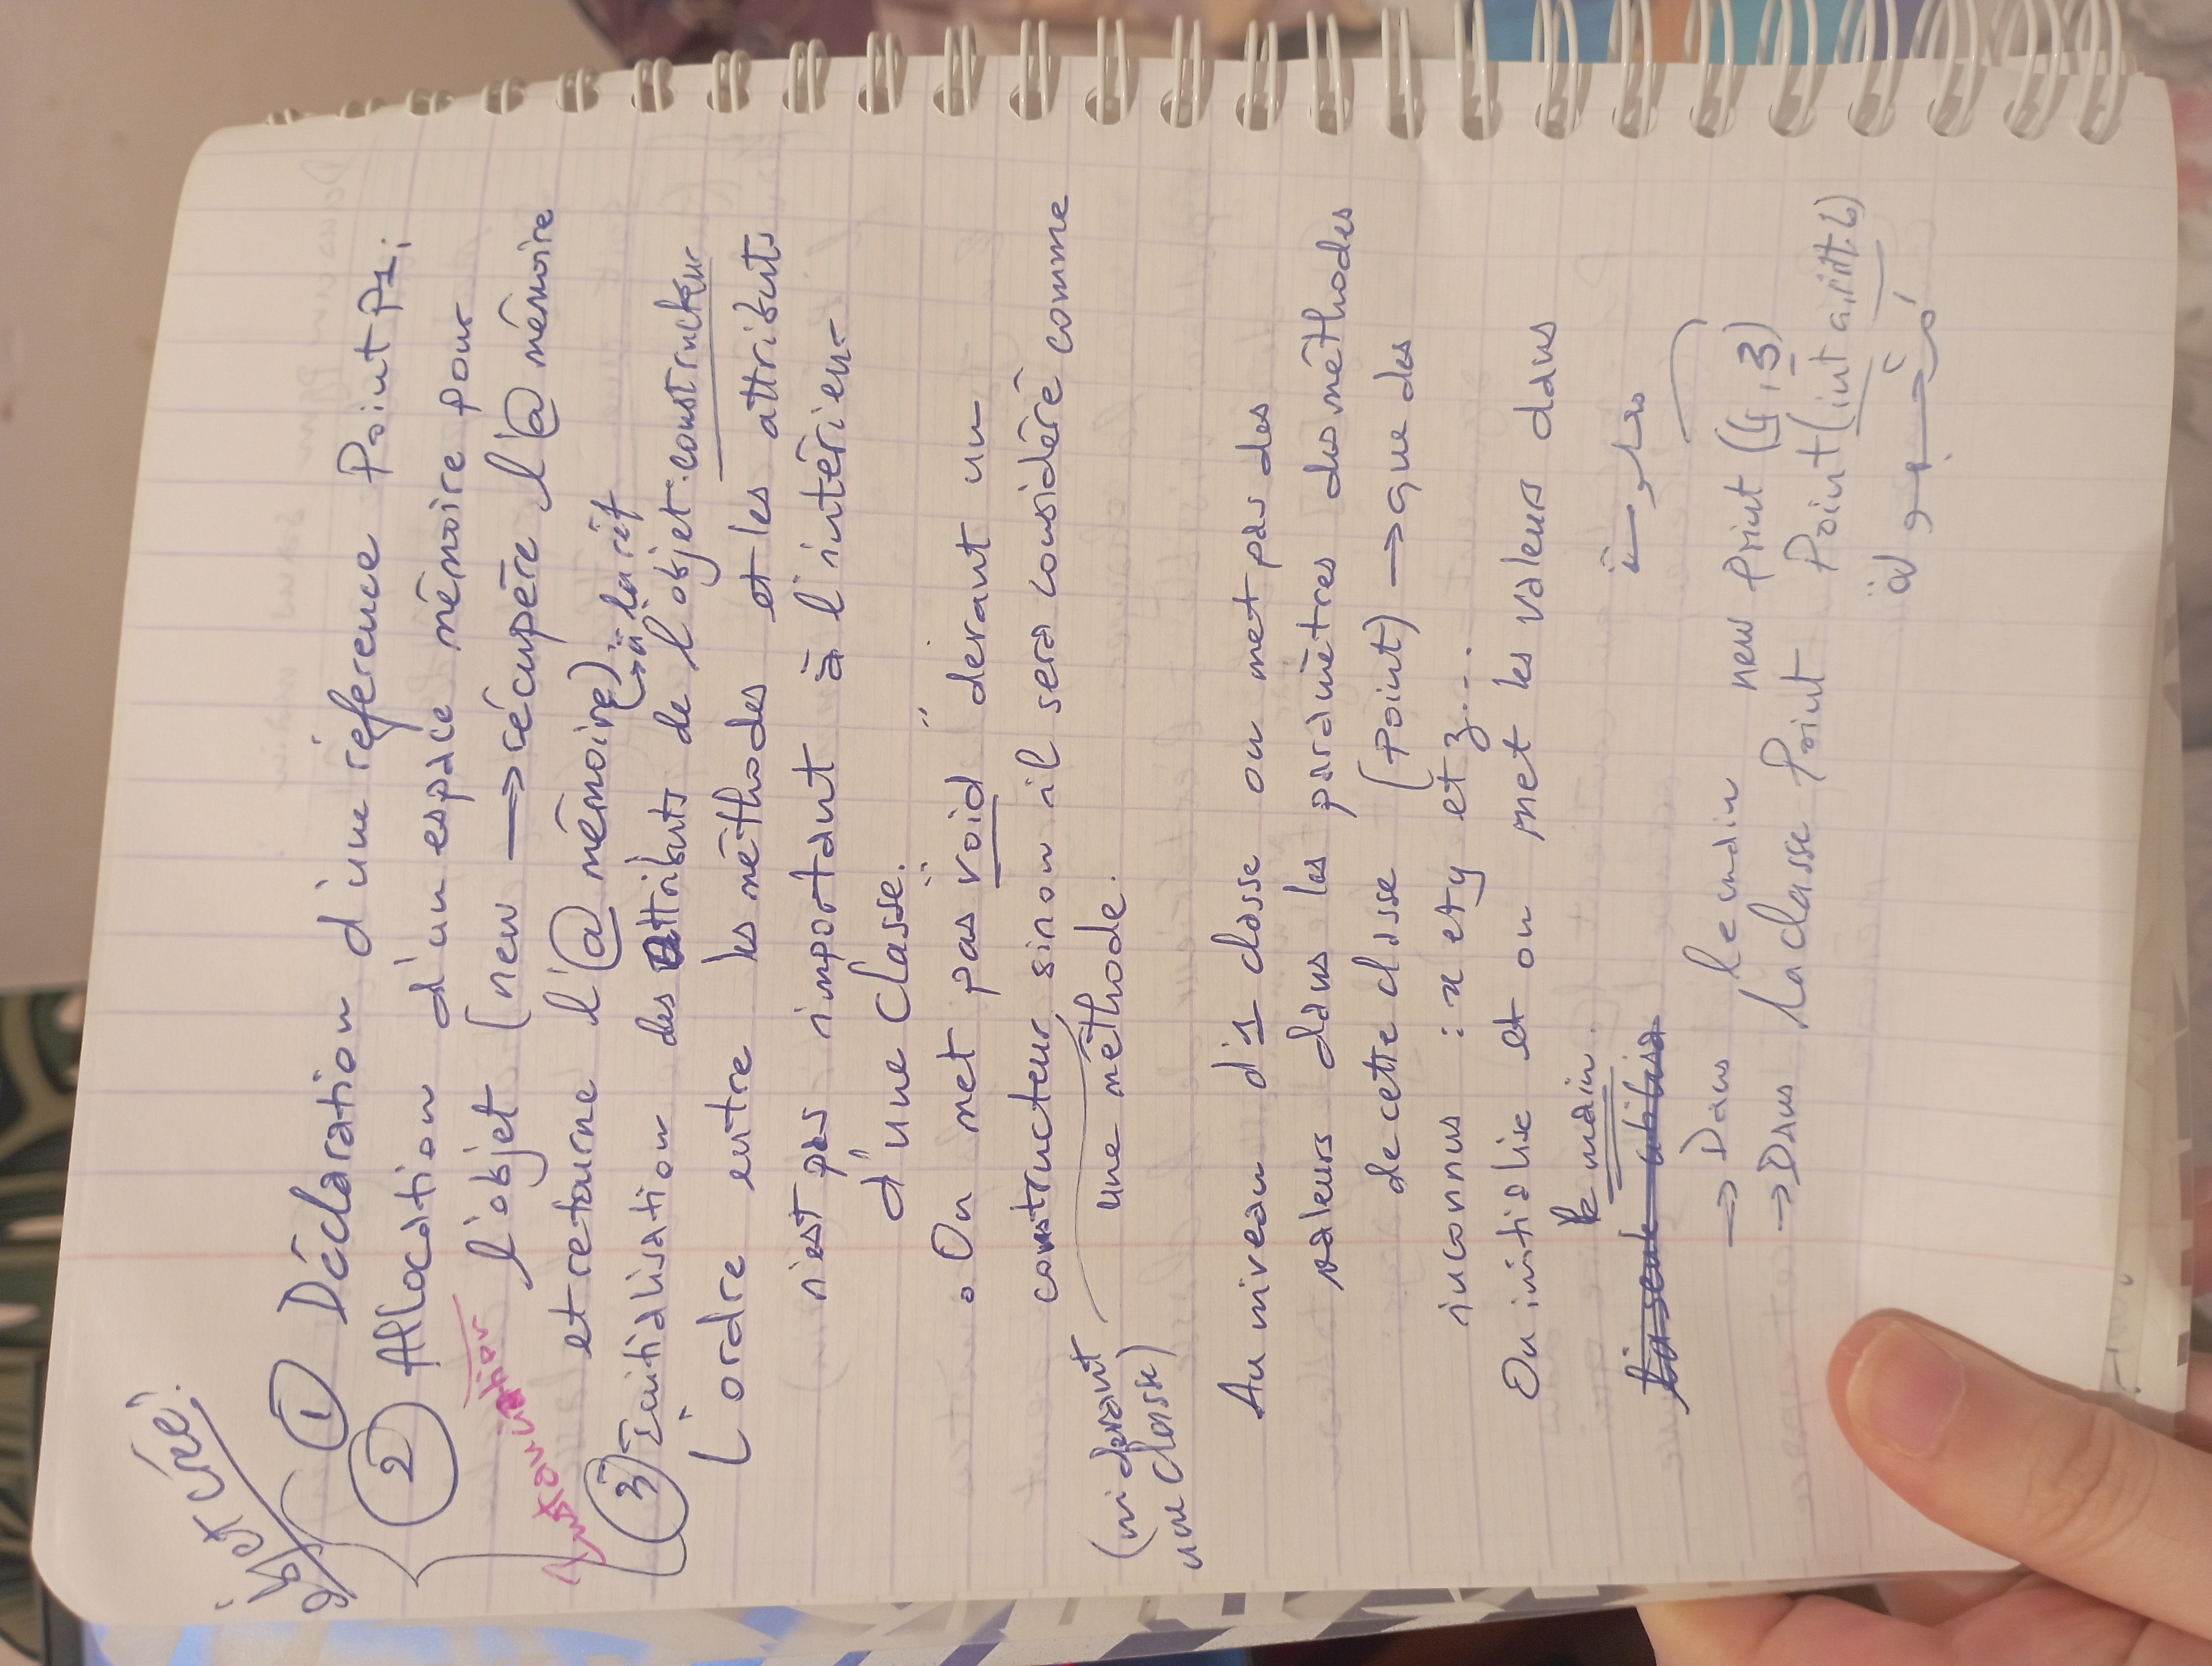 objet crée!
① Déclaration d'une réference Point P1;
② Allocation d'un espace mémoire pour
l'objet (new → récupère l'@ mémoire
Instanciation
et retourne l'@ mémoire).
↳ à la réf
③ Initialisation des attributs de l'objet : constructeur
L'ordre entre les méthodes et les attributs
n'est pas important à l'intérieur
d'une classe.
• On met pas "void" devant un
constructeur, sinon il sera considéré comme
(ni devant
une classe)
une méthode.
Au niveau d'1 classe on met pas des
valeurs dans les paramètres des méthodes
de cette classe (Point) → que des
inconnus : x et y et z...
On initialise et on met les valeurs dans
le main.
معلومة
la seule utilisa
→ Dans le main new Print (4, 3)
→ Dans la classe Point Point(int a, int b)
مَجهولة